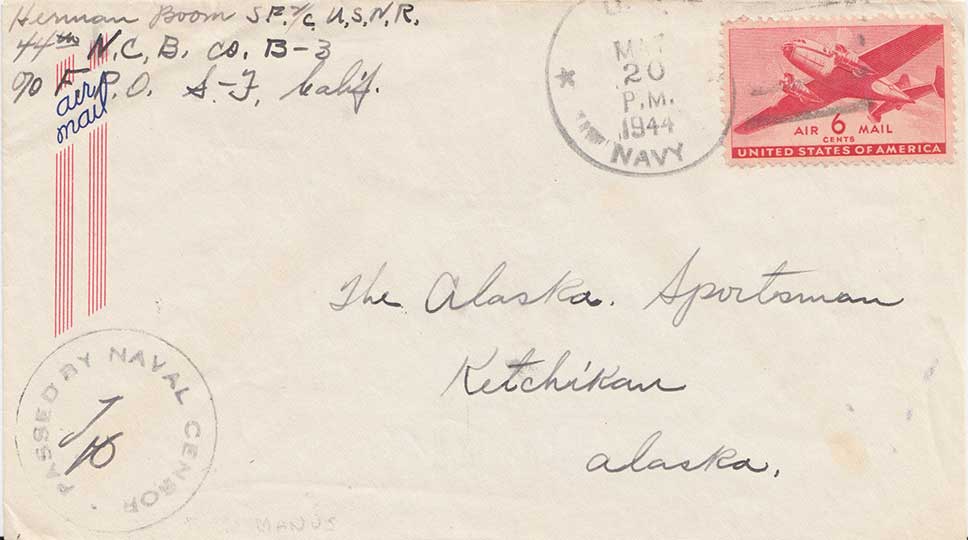 Herman Boom SF.1/c U.S.N.R.
44th N.C.B. Co. B-3
c/o F.P.O. S-F, Calif.
air
mail
20
P.M.
1944
NAVY
AIR 6 MAIL
CENTS
UNITED STATES OF AMERICA
The Alaska. Sportsman
Ketchikan
alaska.
PASSED BY NAVAL CENSOR
MANUS